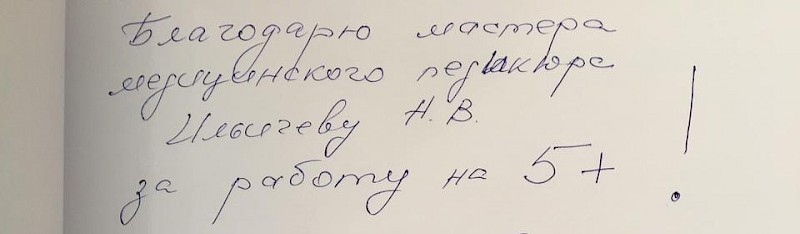 Благодарю мастера
медицинского педикюра
Ильичеву Н.В.
за работу на 5+ !